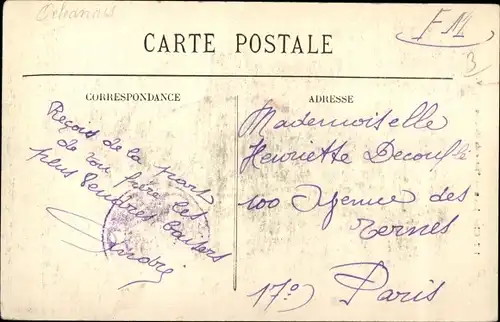 Orléanais
FM
3
CARTE POSTALE
CORRESPONDANCE
ADRESSE
Reçois de la part
de ton frère les
plus tendres baisers
André
Mademoiselle
Henriette
100 Avenue des
Ternes
17º Paris